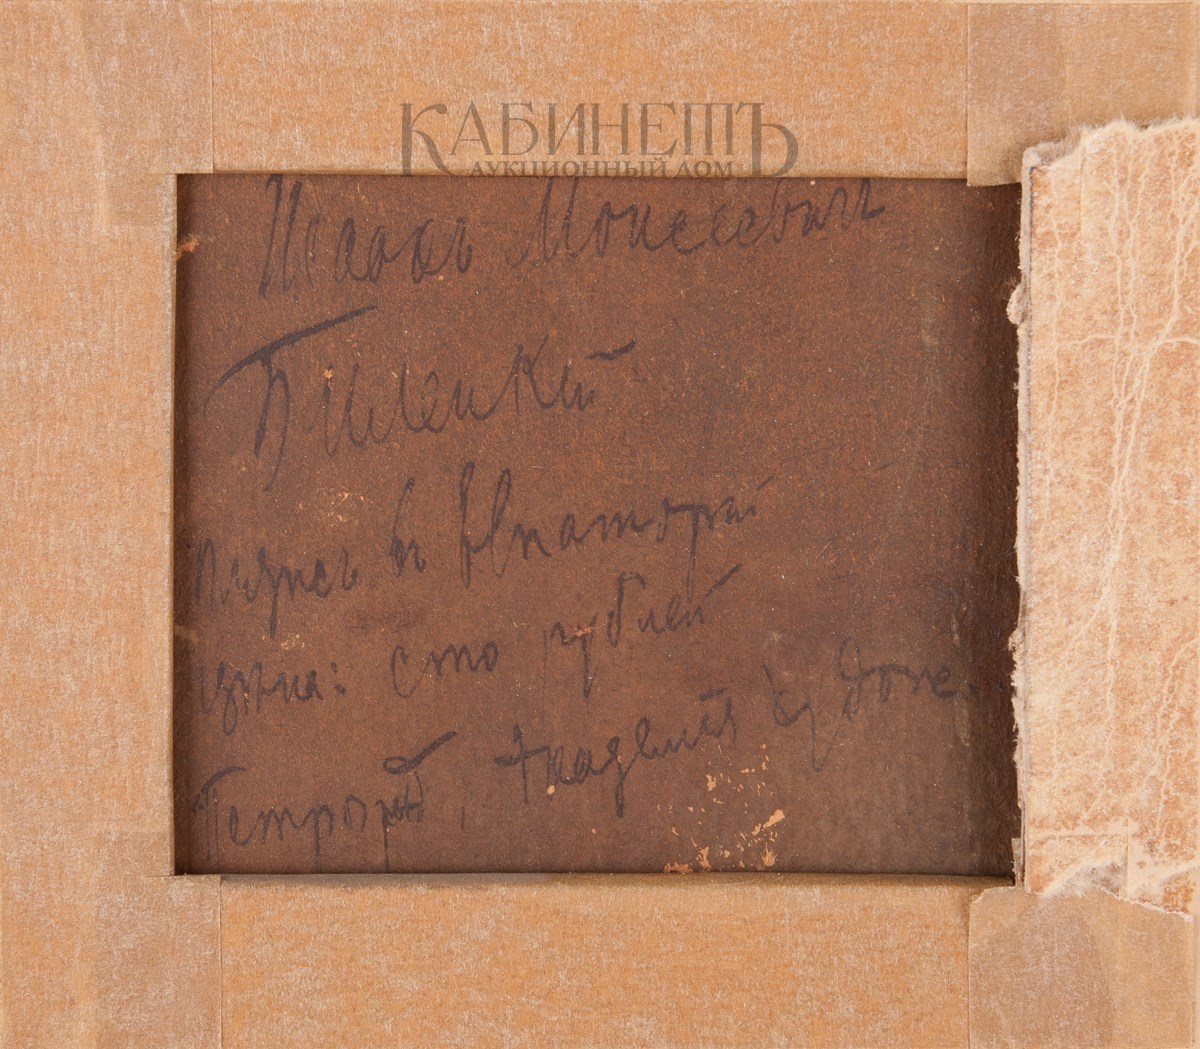 КАБИНЕТЪ
АУКЦИОННЫЙ ДОМ
Исаакъ Моисеевич
въ Евпаторіи
цѣна: сто рублей
Петроград, Академія Художе.